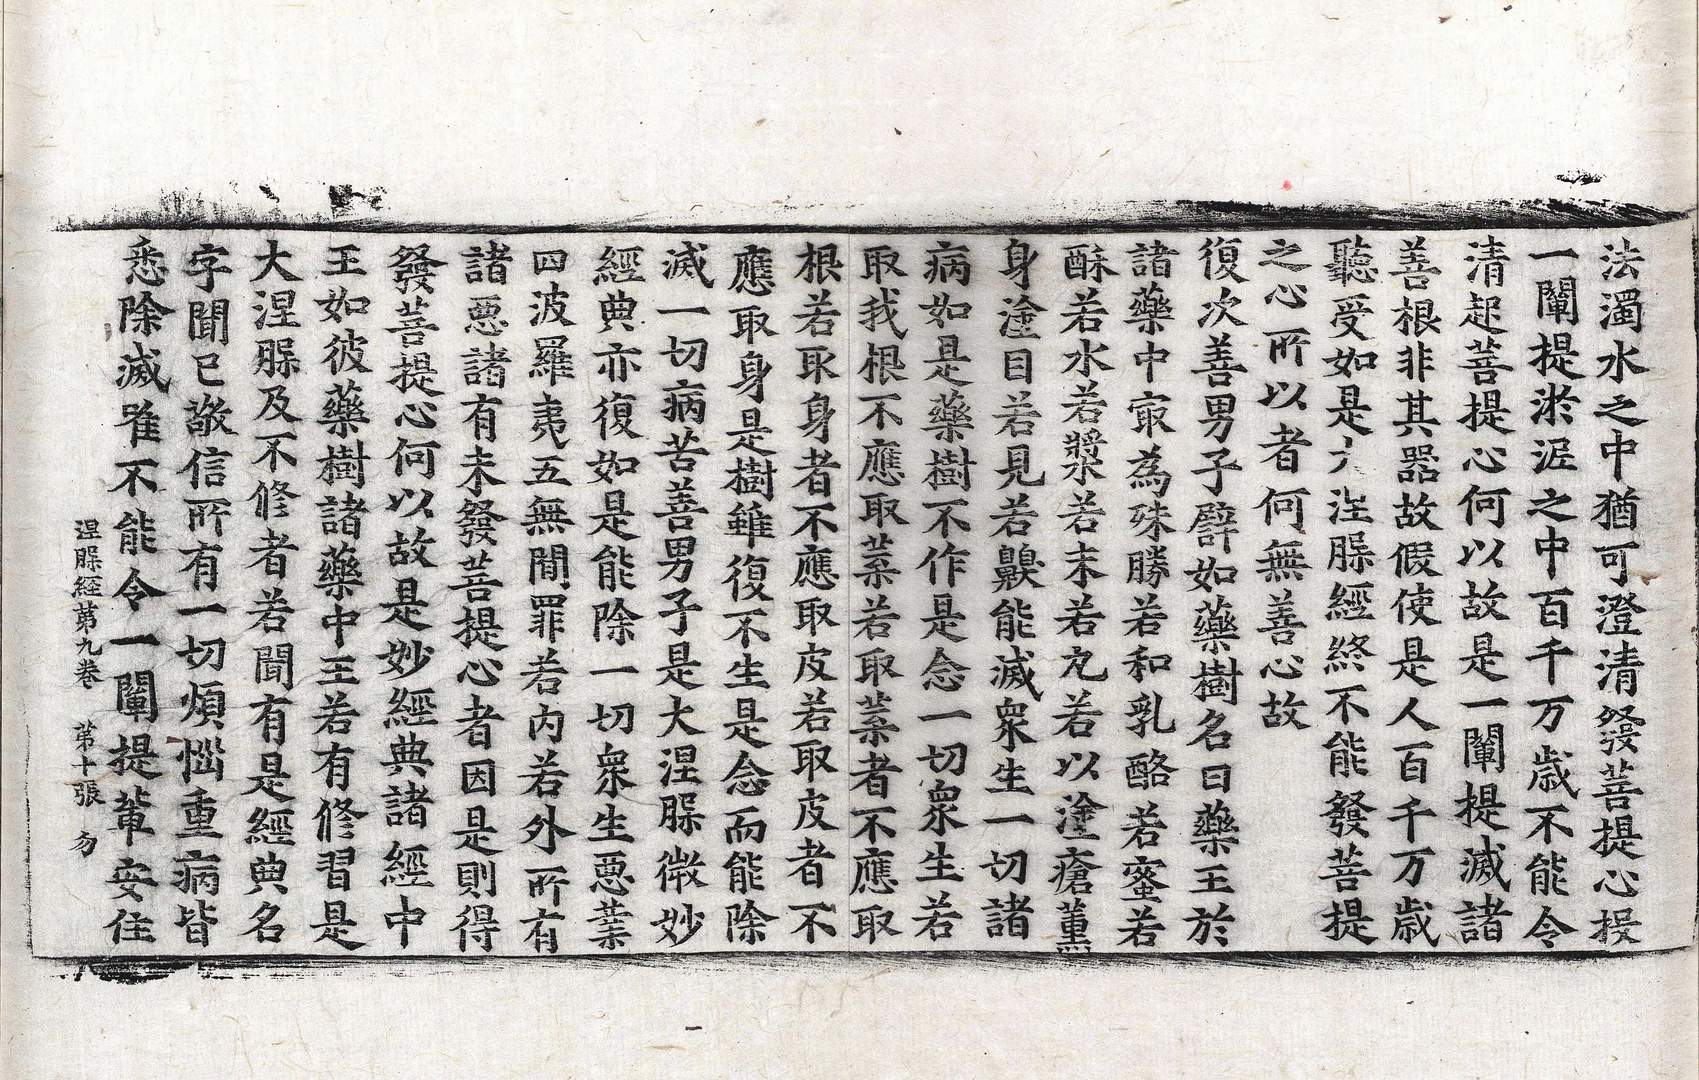 法濁水之中猶可澄清發菩提心投
一闡提淤泥之中百千万歲不能令
清起菩提心何以故是一闡提滅諸
善根非其器故假使是人百千万歲
聽受如是大涅槃經終不能發菩提
之心所以者何無善心故
復次善男子譬如藥樹名曰藥王於
諸藥中㝡為殊勝若和乳酪若蜜若
酥若水若漿若末若丸若以塗瘡薰
身塗目若見若齅能滅衆生一切諸
病如是藥樹不作是念一切衆生若
取我根不應取葉若取葉者不應取
根若取身者不應取皮若取皮者不
應取身是樹雖復不生是念而能除
滅一切病苦善男子是大涅槃微妙
經典亦復如是能除一切衆生惡業
四波羅夷五無間罪若內若外所有
諸惡諸有未發菩提心者因是則得
發菩提心何以故是妙經典諸經中
王如彼藥樹諸藥中王若有修習是
大涅槃及不修者若聞有是經典名
字聞已敬信所有一切煩惱重病皆
悉除滅唯不能令一闡提輩安住
涅槃經第九卷 第十張 勿